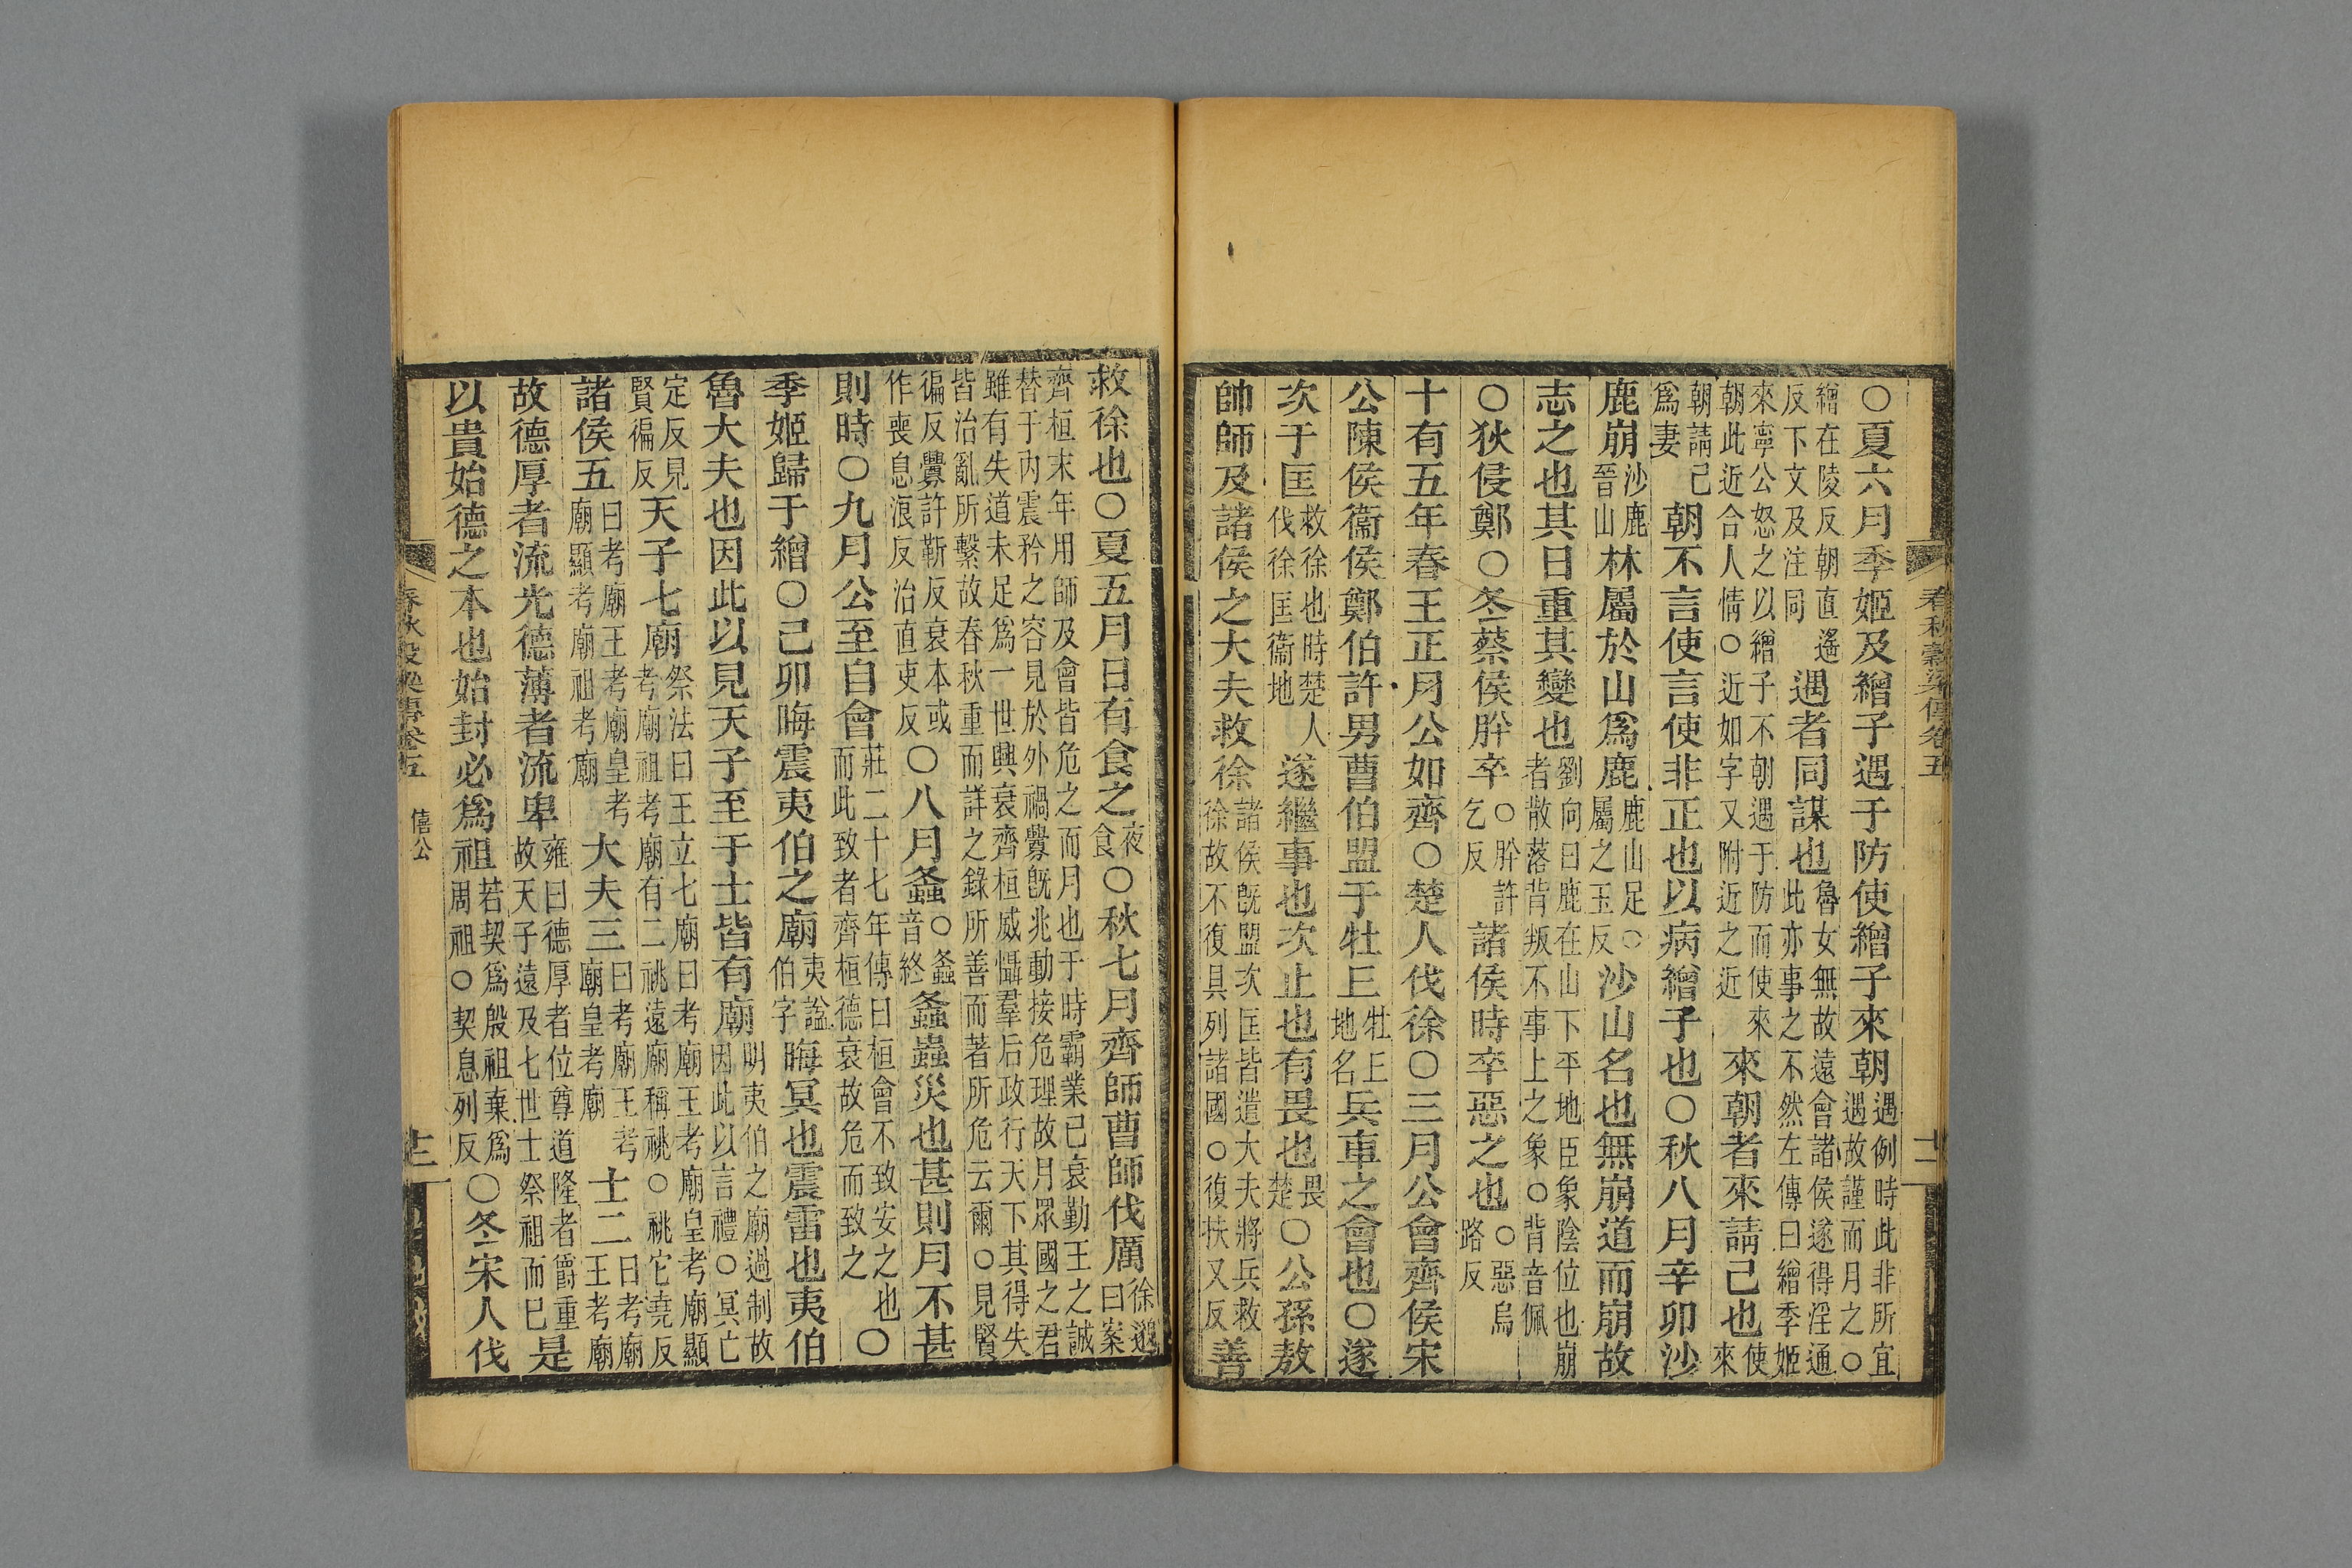 春秋穀梁傳卷五
○夏六月季姬及繒子遇于防使繒子來朝遇例時此非所宜遇故謹而月之○
繒在陵反朝直遙反下文及注同遇者同謀也魯女無故遠會諸侯遂得淫通此亦事之不然左傳曰繒季姬
來寧公怒之以繒子不朝遇于防而使來朝此近合人情○近如字又附近之近來朝者來請己也使來
朝請己爲妻朝不言使言使非正也以病繒子也○秋八月辛卯沙
鹿崩沙鹿晉山林屬於山爲鹿鹿山足○屬之玉反沙山名也無崩道而崩故
志之也其日重其變也劉向曰鹿在山下平地臣象陰位也崩者散落背叛不事上之象○背音佩
○狄侵鄭○冬蔡侯肸卒○肸許乞反諸侯時卒惡之也○惡烏路反
十有五年春王正月公如齊○楚人伐徐○三月公會齊侯宋
公陳侯衞侯鄭伯許男曹伯盟于牡丘牡丘地名兵車之會也○遂
次于匡救徐也時楚人伐徐匡衞地遂繼事也次止也有畏也畏楚○公孫敖
帥師及諸侯之大夫救徐諸侯旣盟次匡皆遣大夫將兵救徐故不復具列諸國○復扶又反善
救徐也○夏五月日有食之夜食○秋七月齊師曹師伐厲徐邈曰案
齊桓末年用師及會皆危之而月也于時霸業已衰勤王之誠替于內震矜之容見於外禍釁旣兆動接危理故月眾國之君
雖有失道未足爲一世興衰齊桓威懾羣后政行天下其得失皆治亂所繫故春秋重而詳之錄所善而著所危云爾○見賢
徧反釁許靳反衰本或作喪息浪反治直吏反○八月螽○螽音終螽蟲災也甚則月不甚
則時○九月公至自會莊二十七年傳曰桓會不致安之也而此致者齊桓德衰故危而致之○
季姬歸于繒○己卯晦震夷伯之廟夷謚伯字晦冥也震雷也夷伯
魯大夫也因此以見天子至于士皆有廟明夷伯之廟過制故因此以言禮○冥亡
定反見賢徧反天子七廟祭法曰王立七廟曰考廟王考廟皇考廟顯考廟祖考廟有二祧遠廟稱祧○祧它堯反
諸侯五曰考廟王考廟皇考廟顯考廟祖考廟大夫三曰考廟王考廟皇考廟士二曰考廟王考廟
故德厚者流光德薄者流卑雍曰德厚者位尊道隆者爵重故天子遠及七世士祭祖而已是
以貴始德之本也始封必爲祖若契爲殷祖棄爲周祖○契息列反○冬宋人伐
僖公